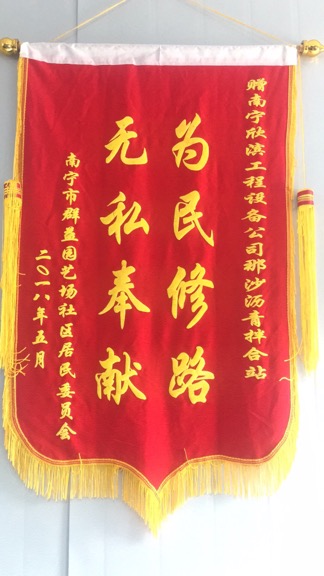 赠南宁欣滨工程设备公司那沙沥青拌合站
为民修路
无私奉献
南宁市群益园艺场社区居民委员会
二〇一八年五月